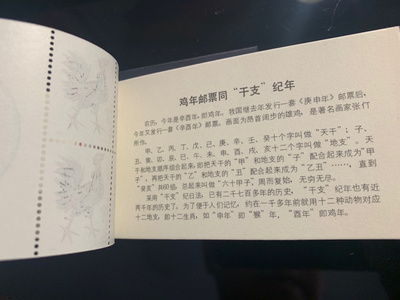 鸡年邮票同“干支”纪年
农历,今年是辛酉年,即鸡年。我国继去年发行一套《庚申年》邮票后,
今年又发行一套《辛酉年》邮票。画面为昂首阔步的雄鸡,是著名画家张仃
所作。
甲、乙、丙、丁、戊、己、庚、辛、壬、癸十个字叫做“天干”;子、
丑、寅、卯、辰、巳、午、未、申、酉、戌、亥十二个字叫做“地支”。天
干和地支顺序组合起来,即把天干的“甲”和地支的“子”配合起来成为“甲
子”,再把天干的“乙”和地支的“丑”配合起来成为“乙丑”……,直到
“癸亥”共60组,总起来叫做“六十甲子”周而复始,无穷无尽。
采用“干支”纪日法,已有二千七百多年的历史,“干支”纪年也有近
两千年的历史了。为了便于人们记忆,约在一千多年前就用十二种动物对应
十二地支,即十二生肖,如“申年”即“猴”年、“酉年”即鸡年。